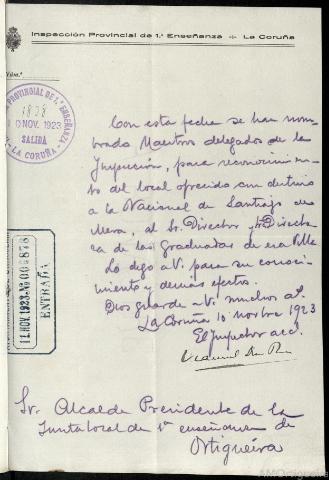 Inspección Provincial de 1.ª Enseñanza - La Coruña
Núm.
PROVINCIAL DE 1.ª ENSEÑANZA
1838
10 NOV. 1923
SALIDA
LA CORUÑA
Con esta fecha se han nom
brado Maestros delegados de la
Inspección, para reconocimien
to del local ofrecido con destino
a la Nacional de Santiago de
Mera, al Sr. Director y Directo
ra de las Graduadas de esa Villa
Lo digo a V. para su conoci
miento y demás efectos.
Dios guarde a V. muchos añ.
La Coruña 10 novbre 1923
El Inspector accl.
11. NOV. 1923 - No 000878
ENTRADA
Sr. Alcalde Presidente de la
Junta local de 1ª enseñanza de
Ortigueira